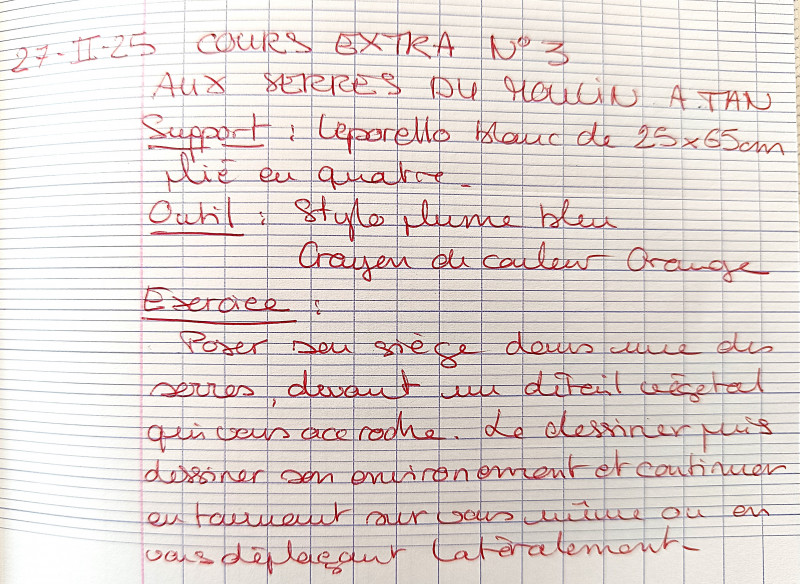 27-II-25 COURS EXTRA N° 3
AUX SERRES DU MOULIN A.TAN
Support : Leporello blanc de 25x65cm
plié en quatre_
Outil : Stylo plume bleu
Crayon de couleur Orange
Exercice :
Poser son siège dans une des
serres, devant un détail végétal
qui vous accroche. Le dessiner puis
dessiner son environement et continuer
en tournant sur vous même ou en
vous déplaçant latéralement_